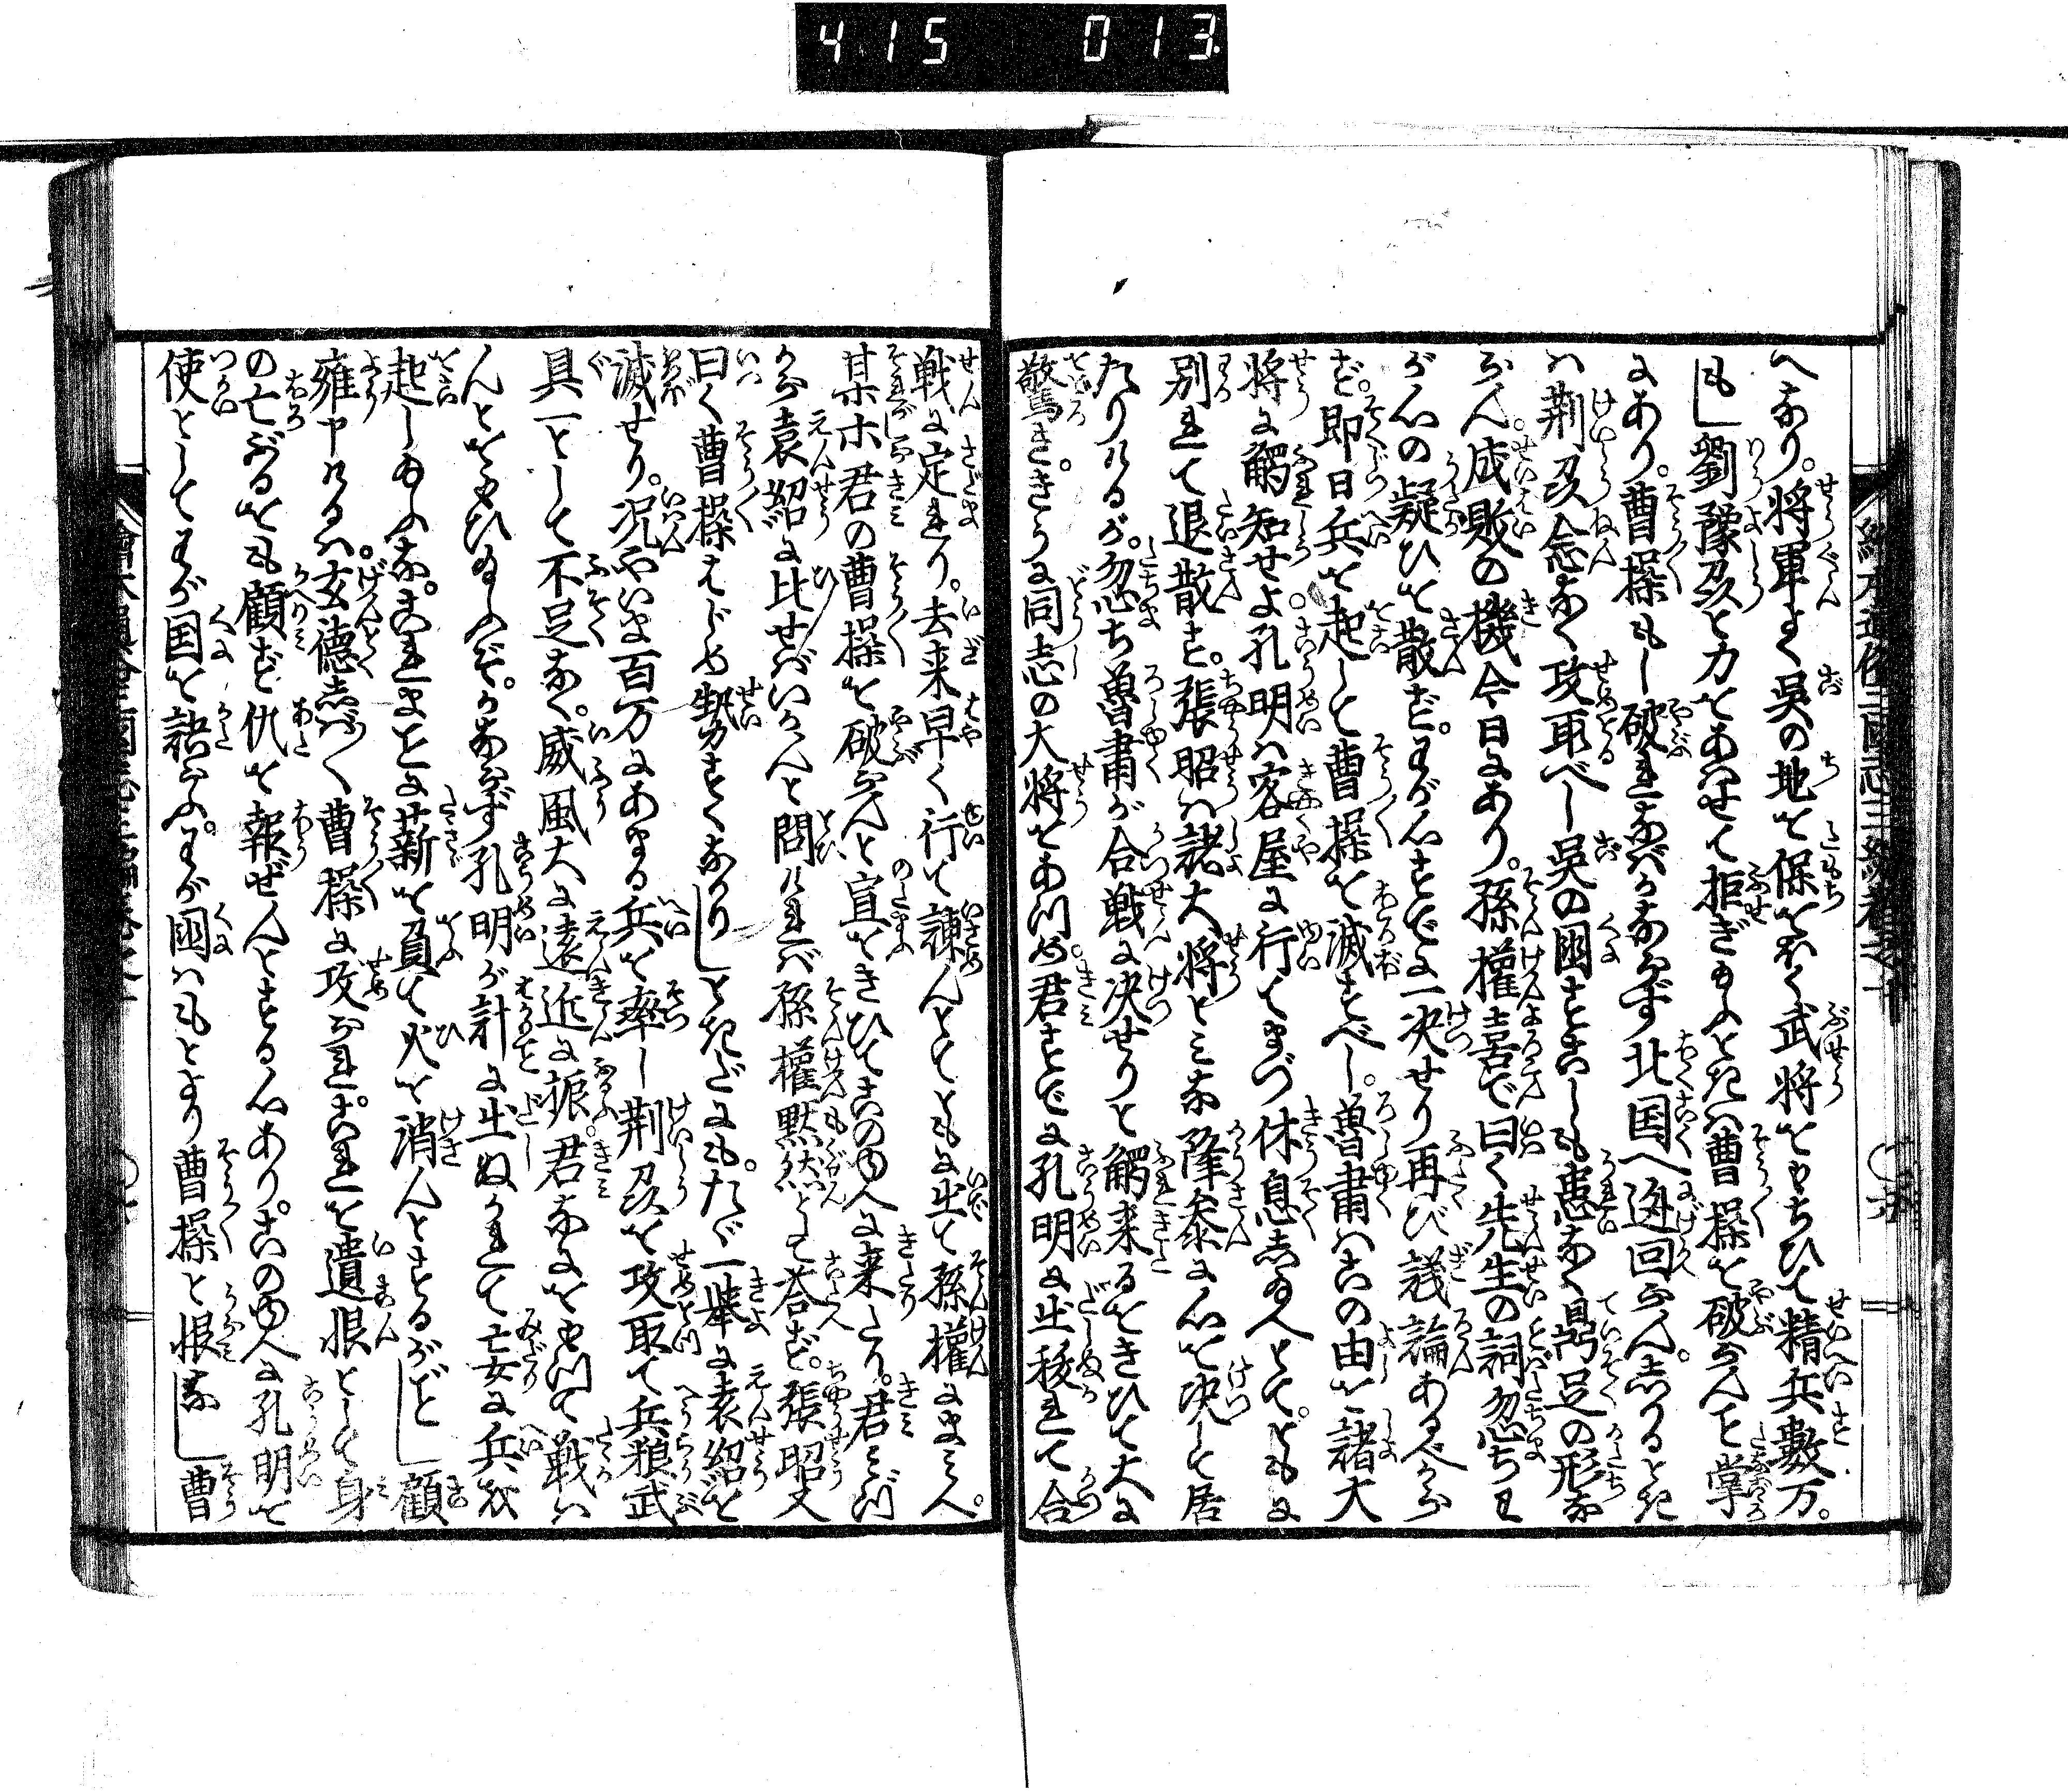 415 013
へなり。将軍よく呉の地を保をなく武将をもちひて精兵数万。
もし劉豫州と力をあはせて拒ぎ給ふときハ曹操を破らんと掌
にあり。曹操もし破れなバかならず北国へ迯回らん。しかるとき
ハ荊州念なく攻取べし呉の国すこしも患なく鼎足の形な
らん。成敗の機今日にあり。孫權喜で曰く先生の詞忽ちわ
が心の疑ひを散ず。わが心すでに一決せり再び議論あるべから
ず。即日兵を起して曹操を滅すべし。魯肅ハこの由を諸大
将に觸知せよ孔明ハ客屋に行てまづ休息し給へとて。ともに
別れて退散す。張昭ハ諸大将とミな降参に心を決して居
たりけるが。忽ち魯肅が合戦に决せりと觸来るをきひて大に
驚き。きうに同志の大将をあつめ。君すでに孔明に出抜れて合
戦に定れり。去来早く行て諫んとてともに出て孫權にまミへ。
某ホ君の曹操を破らんと宣をきひてこの事人に来たり。君ミづ
から袁紹に比せバいかんと問けれバ孫權黙然として答ず。張昭又
曰く曹操はじめ勢すくなかりしときだにも。たゞ一挙に袁紹を
滅せり。况やいま百万にあまる兵を率し荊州を攻取て兵粮武
具一として不足なく。威風大に遠近に振ふ。君なにをもつて戦ハ
んとをもひ給ふぞ。かならず孔明が計に出ぬかれて妄に兵を
起し給ふな。これまことに薪を負て火を消んとするがごとし顧
雍申けるハ。玄徳しバ〱曹操に攻られ。これを遺恨として身
の亡ぶるをも顧ず仇を報ぜんとする心あり。この由人に孔明を
使としてわが国を誘らふ。わが国ハもとより曹操と恨なし曹